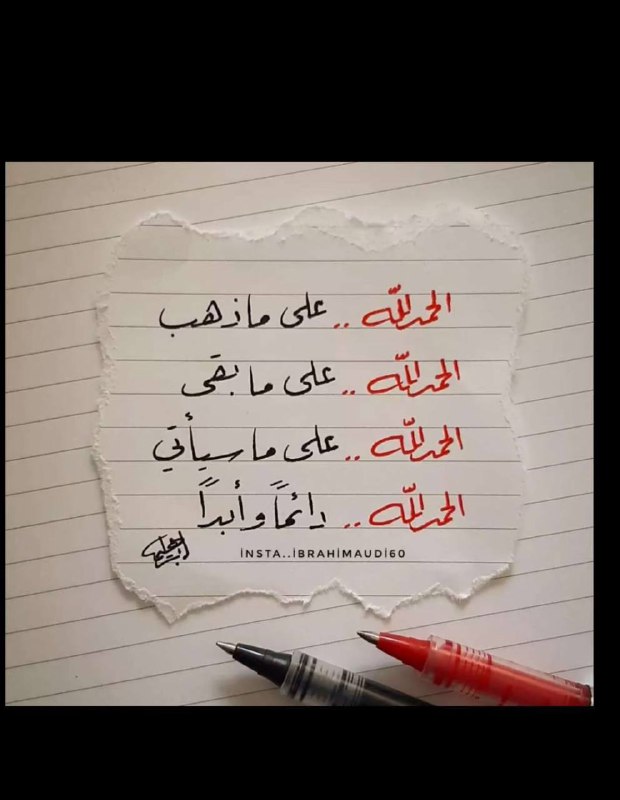 الحمدلله .. على ما ذهب
الحمدلله .. على ما بقى
الحمدلله .. على ما سيأتي
الحمدلله .. دائماً وأبداً
İNSTA..İBRAHİMAUDİ60